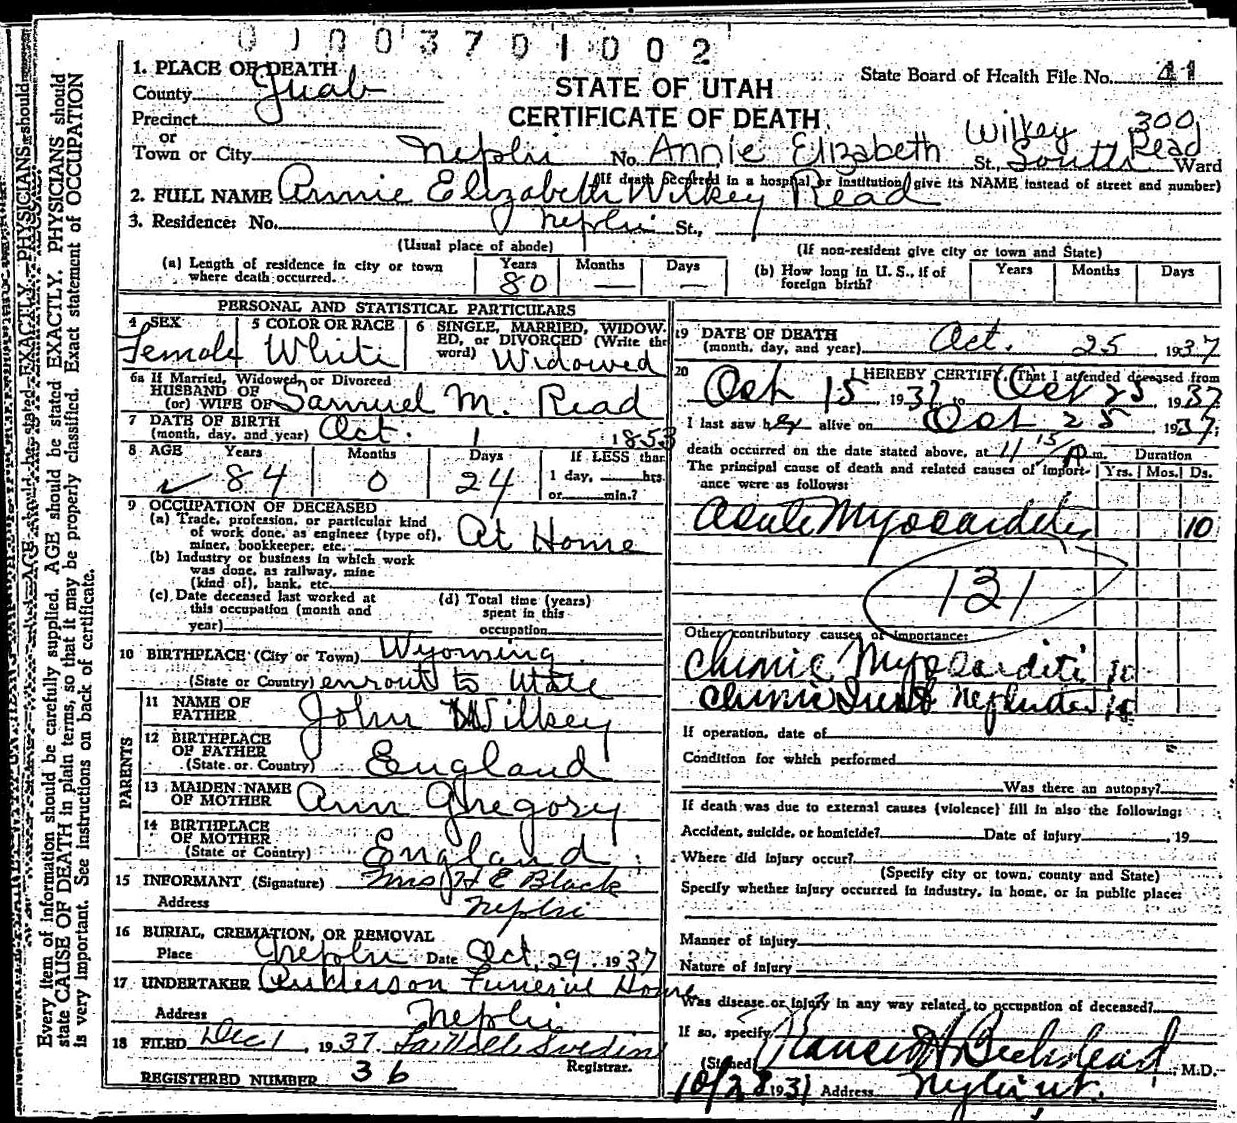 0 1 0 0 3 7 0 1 0 0 2
1. PLACE OF DEATH
County Juab
Precinct
or
Town or City Nephi No. Annie Elizabeth Wilkey Read 300 St., South Ward
STATE OF UTAH
CERTIFICATE OF DEATH
State Board of Health File No. 41
(If death occurred in a hospital or institution, give its NAME instead of street and number)
2. FULL NAME Annie Elizabeth Wilkey Read
3. Residence: No. Nephi St.,
(Usual place of abode) (If non-resident give city or town and State)
(a) Length of residence in city or town where death occurred. Years 80 Months — Days —
(b) How long in U. S., if of foreign birth? Years Months Days
PERSONAL AND STATISTICAL PARTICULARS
4 SEX Female
5 COLOR OR RACE White
6 SINGLE, MARRIED, WIDOWED, or DIVORCED (Write the word) Widowed
6a If Married, Widowed, or Divorced
HUSBAND OF
(or) WIFE OF Samuel M. Read
7 DATE OF BIRTH
(month, day, and year) Oct. 1 1853
8 AGE Years 84 Months 0 Days 24 If LESS than 1 day, hrs. or min.?
9 OCCUPATION OF DECEASED
(a) Trade, profession, or particular kind of work done, as engineer (type of), miner, bookkeeper, etc. At Home
(b) Industry or business in which work was done, as railway, mine (kind of), bank, etc.
(c) Date deceased last worked at this occupation (month and year)
(d) Total time (years) spent in this occupation
10 BIRTHPLACE (City or Town) Wyoming
(State or Country) enrout to Utah
PARENTS
11 NAME OF FATHER John Wilkey
12 BIRTHPLACE OF FATHER
(State or Country) England
13 MAIDEN NAME OF MOTHER Ann Ghregory
14 BIRTHPLACE OF MOTHER
(State or Country) England
15 INFORMANT (Signature) Mrs H E Black
Address Nephi
16 BURIAL, CREMATION, OR REMOVAL
Place Nephi Date Oct. 29, 1937
17 UNDERTAKER Anderson Funeral Home
Address Nephi
18 FILED Dec 1, 1937
Registrar.
REGISTERED NUMBER 36
19 DATE OF DEATH
(month, day, and year) Oct. 25 1937
20 I HEREBY CERTIFY, That I attended deceased from
Oct 15 1937 to Oct 25 1937
I last saw her alive on Oct 25 1937;
death occurred on the date stated above, at 11 15/ P m.
Duration
The principal cause of death and related causes of importance were as follows: Yrs. Mos. Ds.
Acute Myocarditis 10
131
Other contributory causes of importance:
Chronic Myocarditis 10
Chronic Nephritis
If operation, date of
Condition for which performed
Was there an autopsy?
If death was due to external causes (violence) fill in also the following:
Accident, suicide, or homicide? Date of injury , 19
Where did injury occur?
(Specify city or town, county and State)
Specify whether injury occurred in industry, in home, or in public place:
Manner of injury
Nature of injury
Was disease or injury in any way related to occupation of deceased?
If so, specify
(Signed) Beckstead, M.D.
10/28 1937 Address Nephi, Ut.
Every item of information should be carefully supplied. AGE should be stated EXACTLY. PHYSICIANS should
state CAUSE OF DEATH in plain terms, so that it may be properly classified. Exact statement of OCCUPATION
is very important. See instructions on back of certificate.